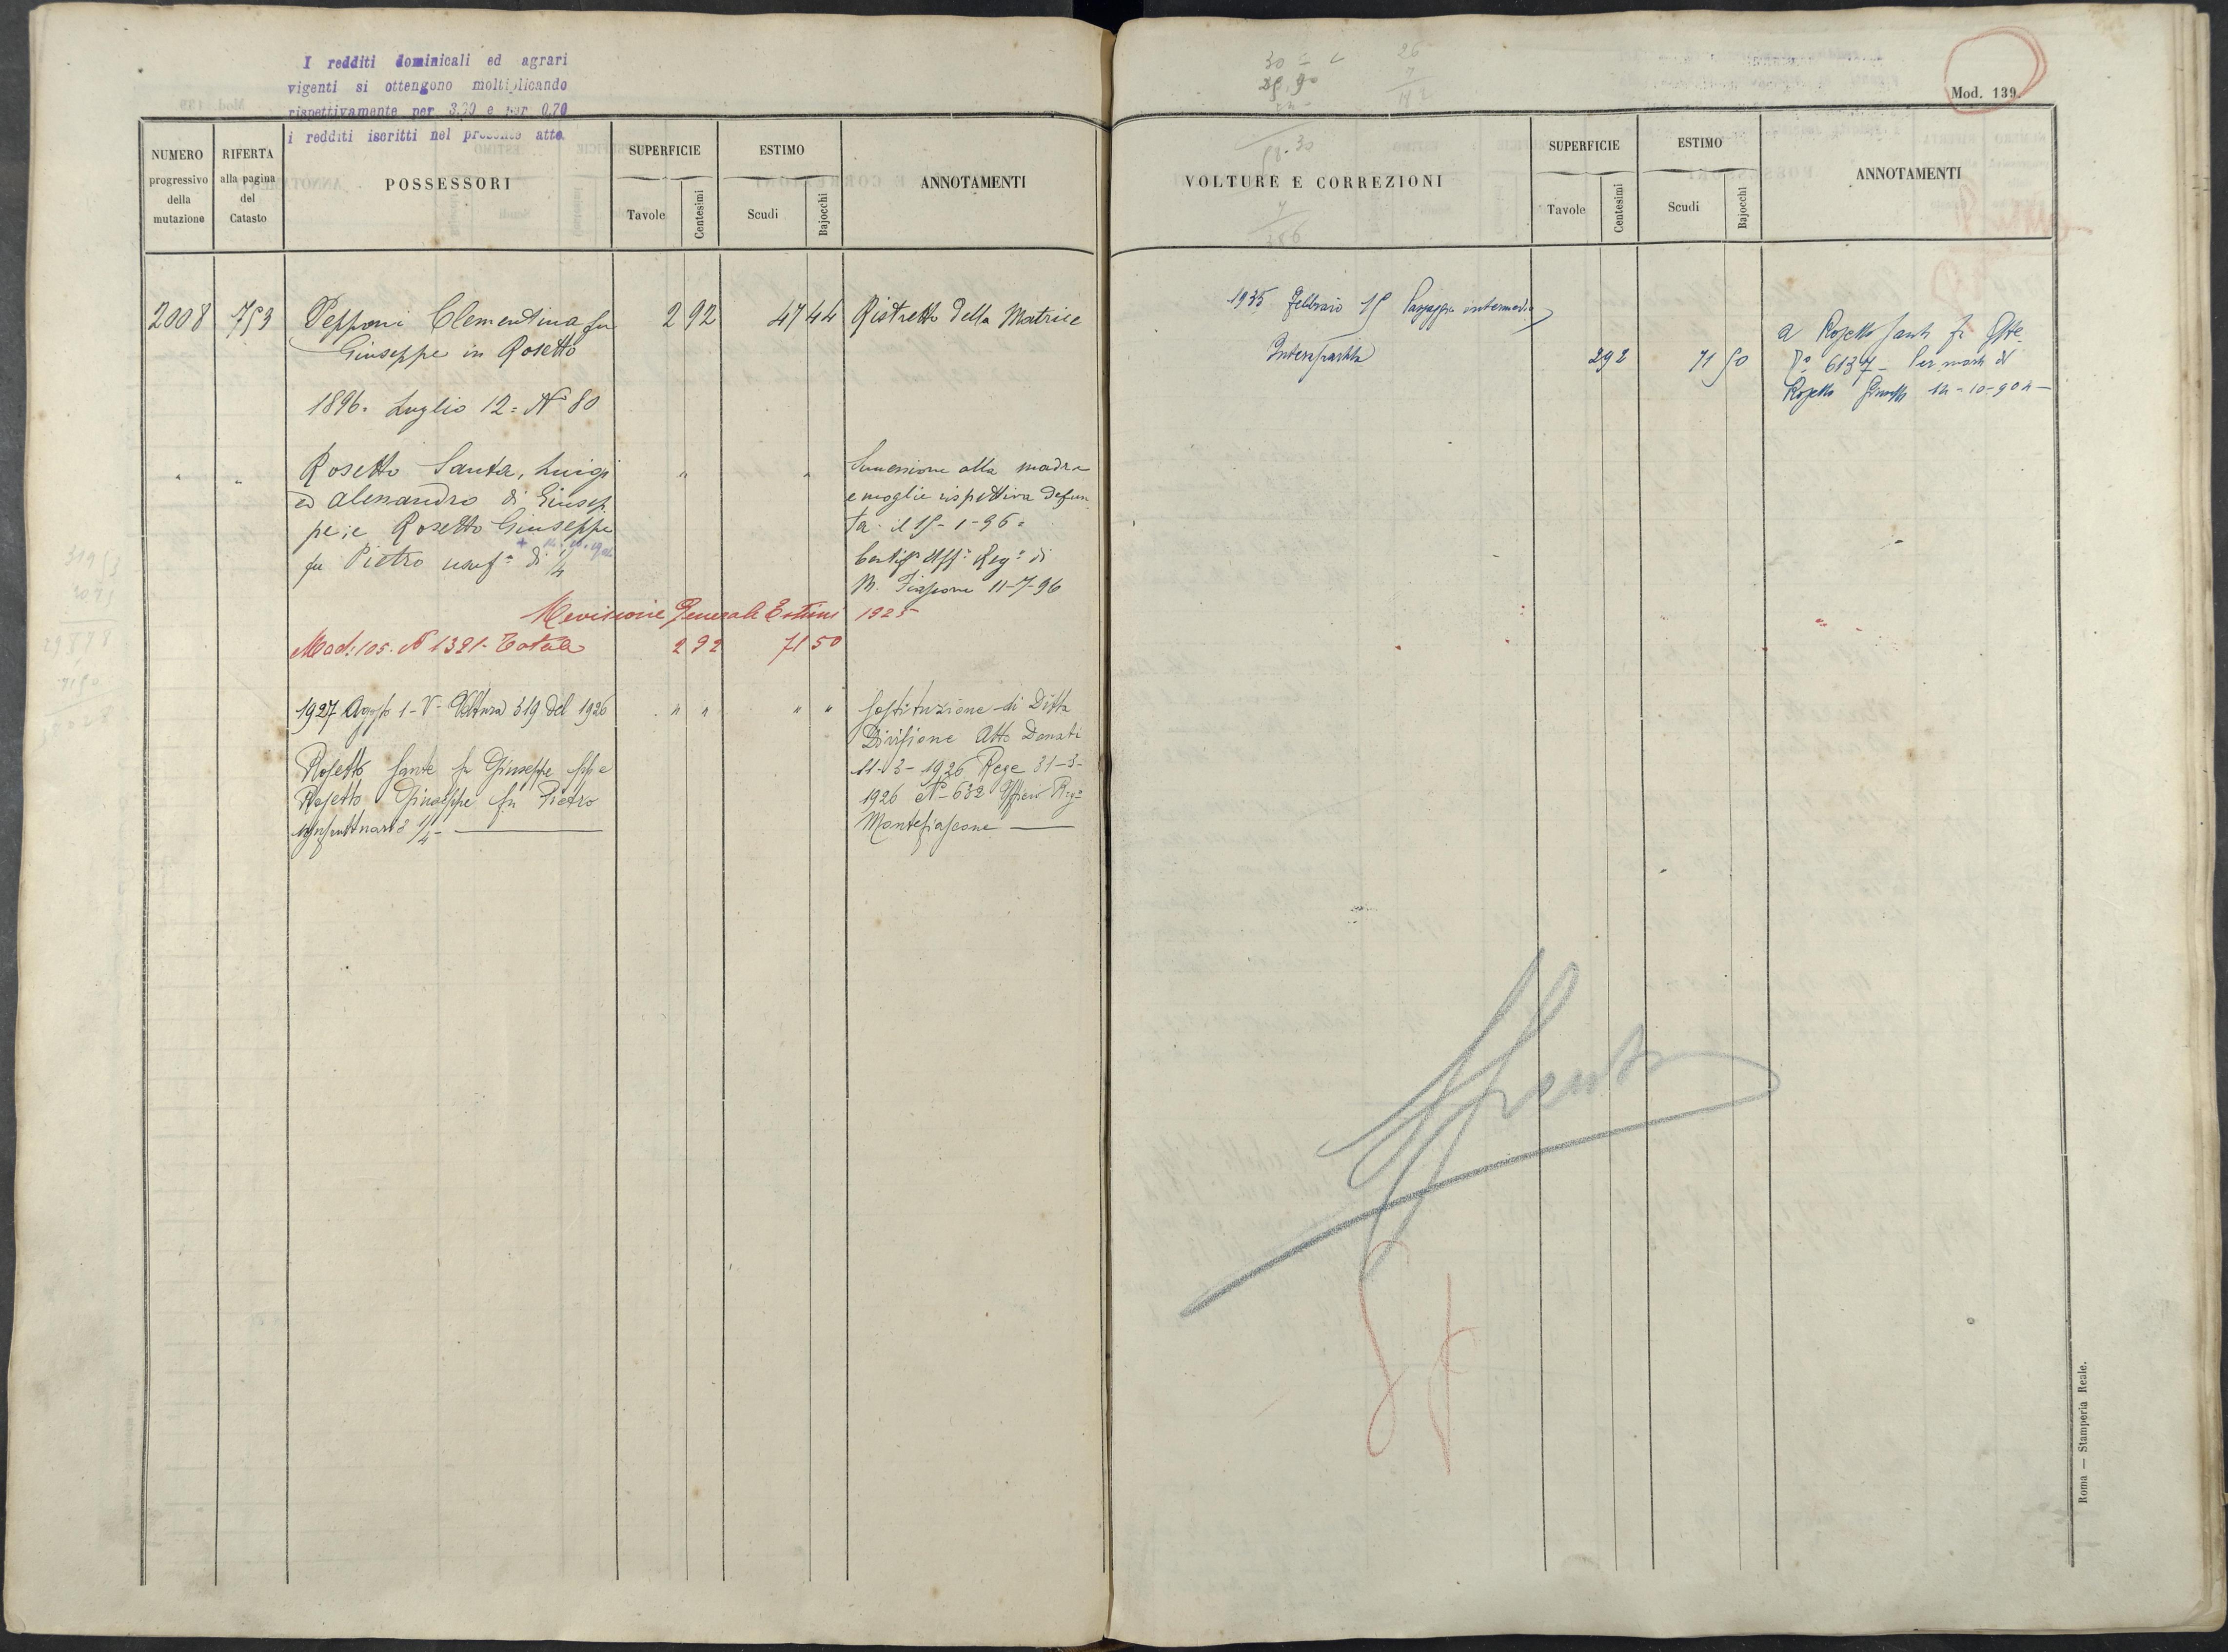 I redditi dominicali ed agrari
vigenti si ottengono moltiplicando
rispettivamente per 3.20 e per 0.70
i redditi iscritti nel presente atto.
NUMERO
progressivo
della
mutazione
RIFERTA
alla pagina
del
Catasto
POSSESSORI
SUPERFICIE
Tavole
Centesimi
ESTIMO
Scudi
Bajocchi
ANNOTAMENTI
2008 753 Pepponi Clementina fu 2 92 47 44 Ristretto della Matrice
Giuseppe in Rosetto
1896. Luglio 12 = N° 80
" " Rosetto Santa, Luigi " " Successione alla madre
ed Alessandro di Giusep e moglie rispettiva defun
pe; e Rosetto Giuseppe ta il 15-1-96 =
fu Pietro usuf° di 1/4 Certif° Uff° Reg° di
M. Fiascone 11-7-96
Revisione Generale Estimi 1925
Mod: 105. N 1391. Totale 2 92 71 50
1927 Agosto 1-V- Voltura 319 del 1926 " " " " Sostituzione di Ditta
Divisione Atto Donati
Rosetto Sante fu Giuseppe pp e 11-3-1926 Rege 31-3-
Rosetto Giuseppe fu Pietro 1926 N- 632 Ufficio Reg°
usufruttuario 1/4 - Montefiascone
Mod. 139.
VOLTURE E CORREZIONI
SUPERFICIE
Tavole
Centesimi
ESTIMO
Scudi
Bajocchi
ANNOTAMENTI
1935 Febbraio 15 Passaggio intermedio
a Rosetto Sante fu Gppe
Intera partita 2 92 71 50 P° 6137 - Per morte di
Rosetto
Spenta
Roma — Stamperia Reale.